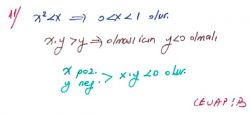 11/ x² < x ⇒ 0 < x < 1 olur.
x.y > y ⇒ olması için y<0 olmalı
x poz.
y neg. > x.y<0 olur.
CEVAP: B